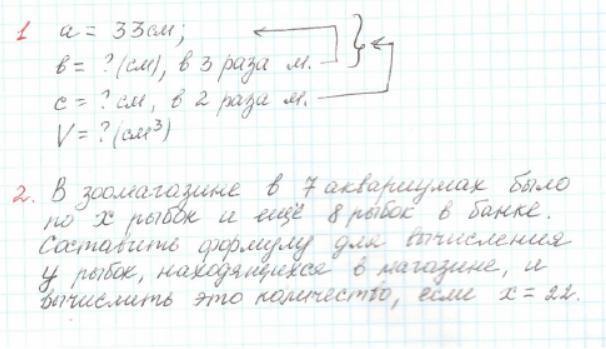 1 a = 33 см;
в = ? (см), в 3 раза м.
с = ? см, в 2 раза м.
V = ? (см³)
2. В зоомагазине в 7 аквариумах было
по x рыбок и ещё 8 рыбок в банке.
Составить формулу для вычисления
y рыбок, находящихся в магазине, и
вычислить это количество, если x = 22.